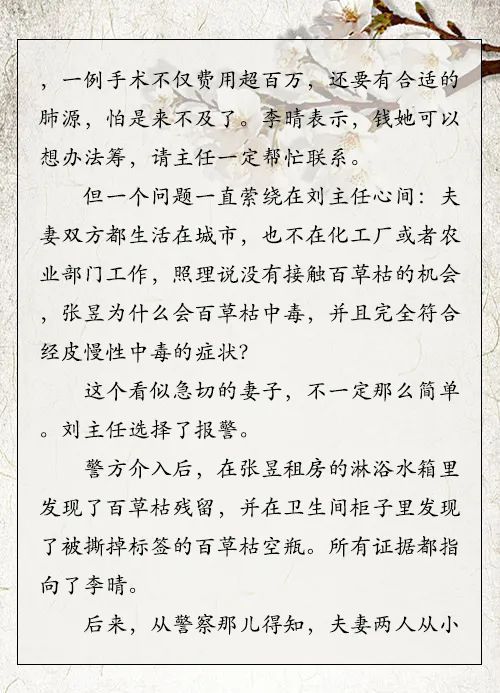 ，一例手术不仅费用超百万，还要有合适的
肺源，怕是来不及了。李晴表示，钱她可以
想办法筹，请主任一定帮忙联系。
但一个问题一直萦绕在刘主任心间：夫
妻双方都生活在城市，也不在化工厂或者农
业部门工作，照理说没有接触百草枯的机会
，张昱为什么会百草枯中毒，并且完全符合
经皮慢性中毒的症状？
这个看似急切的妻子，不一定那么简单
。刘主任选择了报警。
警方介入后，在张昱租房的淋浴水箱里
发现了百草枯残留，并在卫生间柜子里发现
了被撕掉标签的百草枯空瓶。所有证据都指
向了李晴。
后来，从警察那儿得知，夫妻两人从小